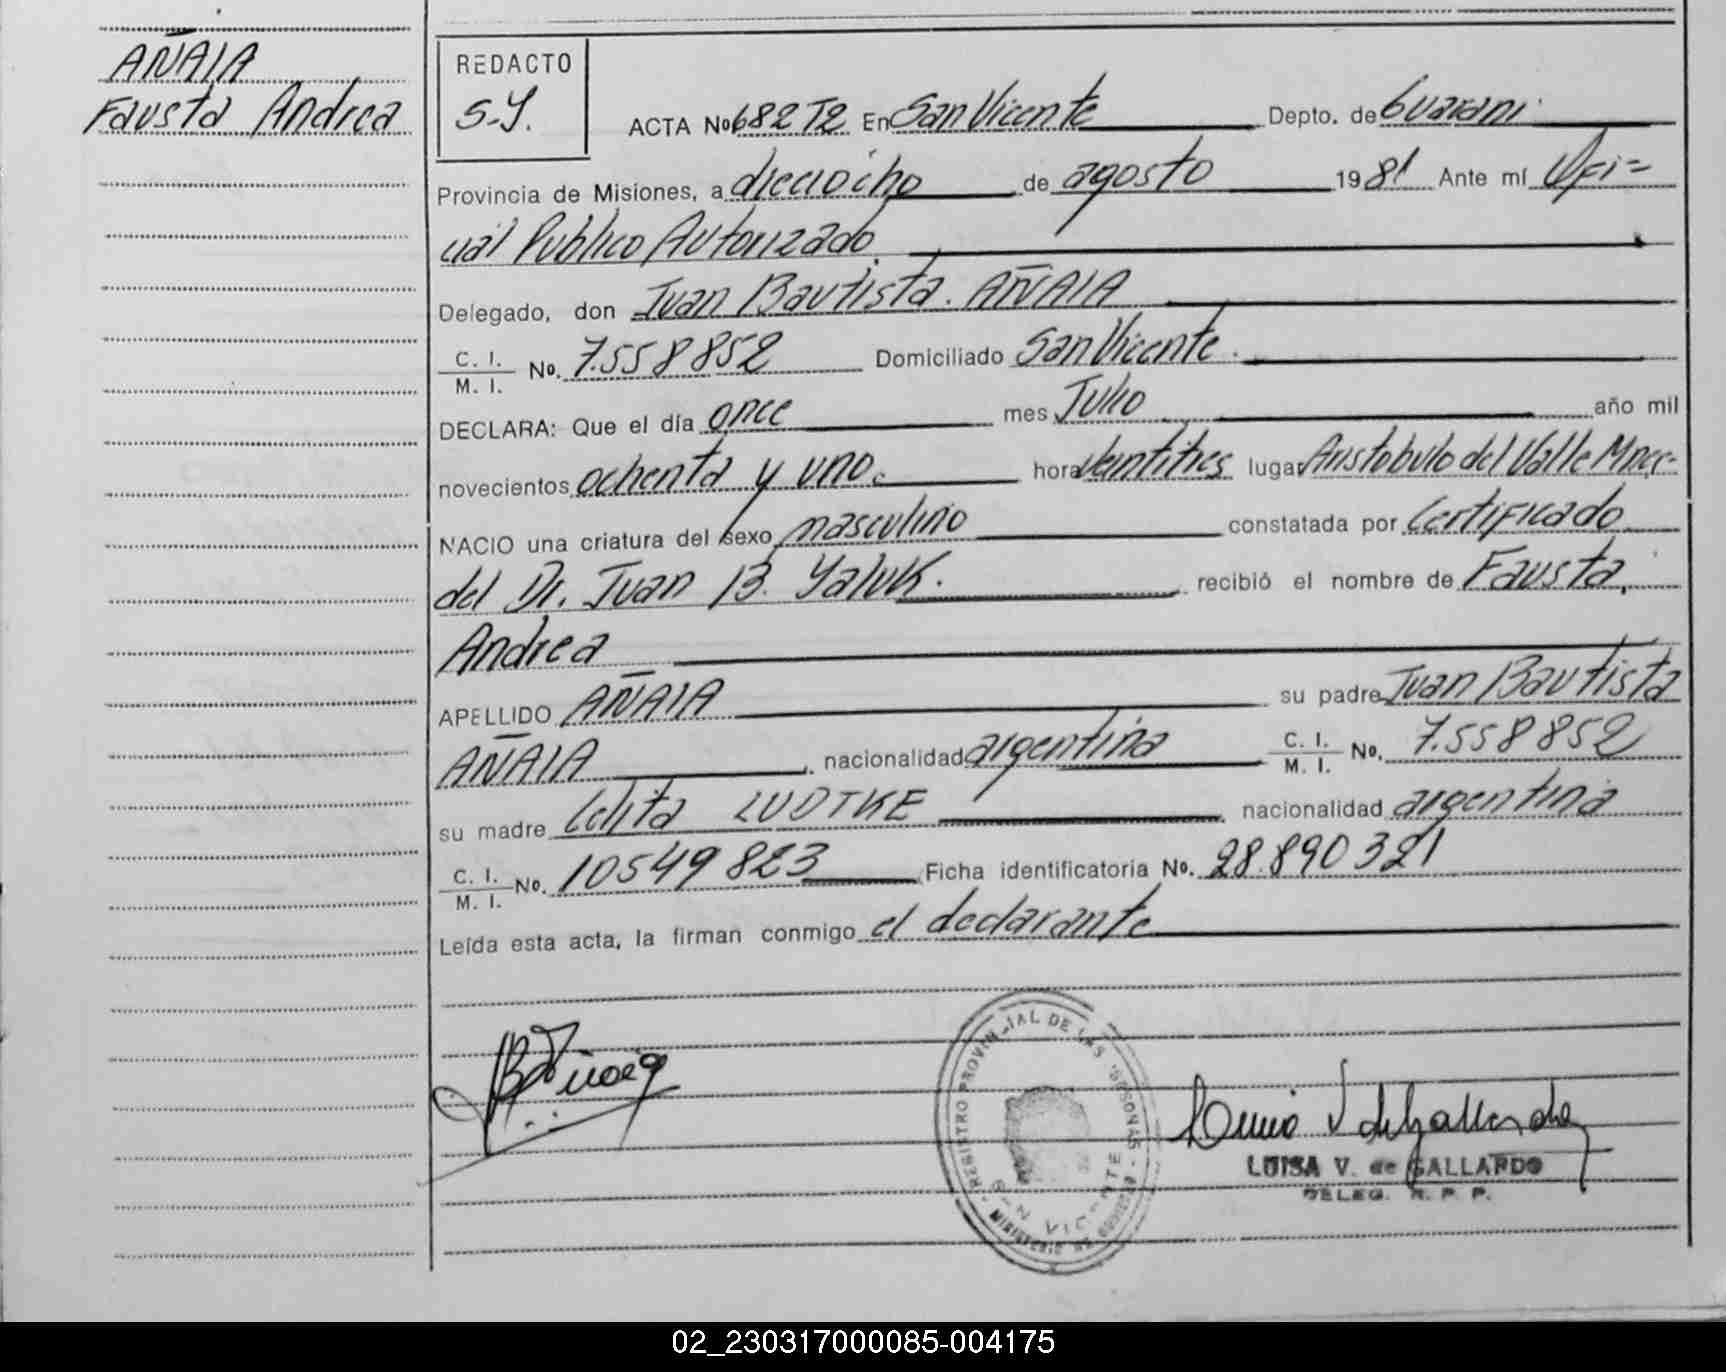 AÑAIA
Fausta Andrea
REDACTO
S-Y.
ACTA Nº 682 T2 En San Vicente Depto. de Guarani
Provincia de Misiones, a dieciocho de agosto 1981 Ante mí Ofi=
cial Publico Autorizado.
Delegado, don Juan Bautista. AÑAIA
C. I.
M. I. Nº. 7.558852 Domiciliado San Vicente.
DECLARA: Que el día once mes Julio año mil
novecientos ochenta y uno. hora veintitres lugar Aristobulo del Valle Mnes.-
NACIO una criatura del sexo masculino constatada por Certificado
del Dr. Juan B. Yaluk. recibió el nombre de Fausta,
Andrea
APELLIDO AÑAIA su padre Juan Bautista
AÑAIA nacionalidad argentina C. I.
M. I. Nº. 7.558852
su madre Lelita LUDTKE nacionalidad argentina
C. I.
M. I. Nº. 10549823 Ficha identificatoria Nº. 28.890321
Leída esta acta, la firman conmigo el declarante
REGISTRO PROVINCIAL DE LAS PERSONAS - MISIONES
SAN VICENTE
LUISA V. de GALLARDO
DELEG. R. P. P.
02_230317000085-004175